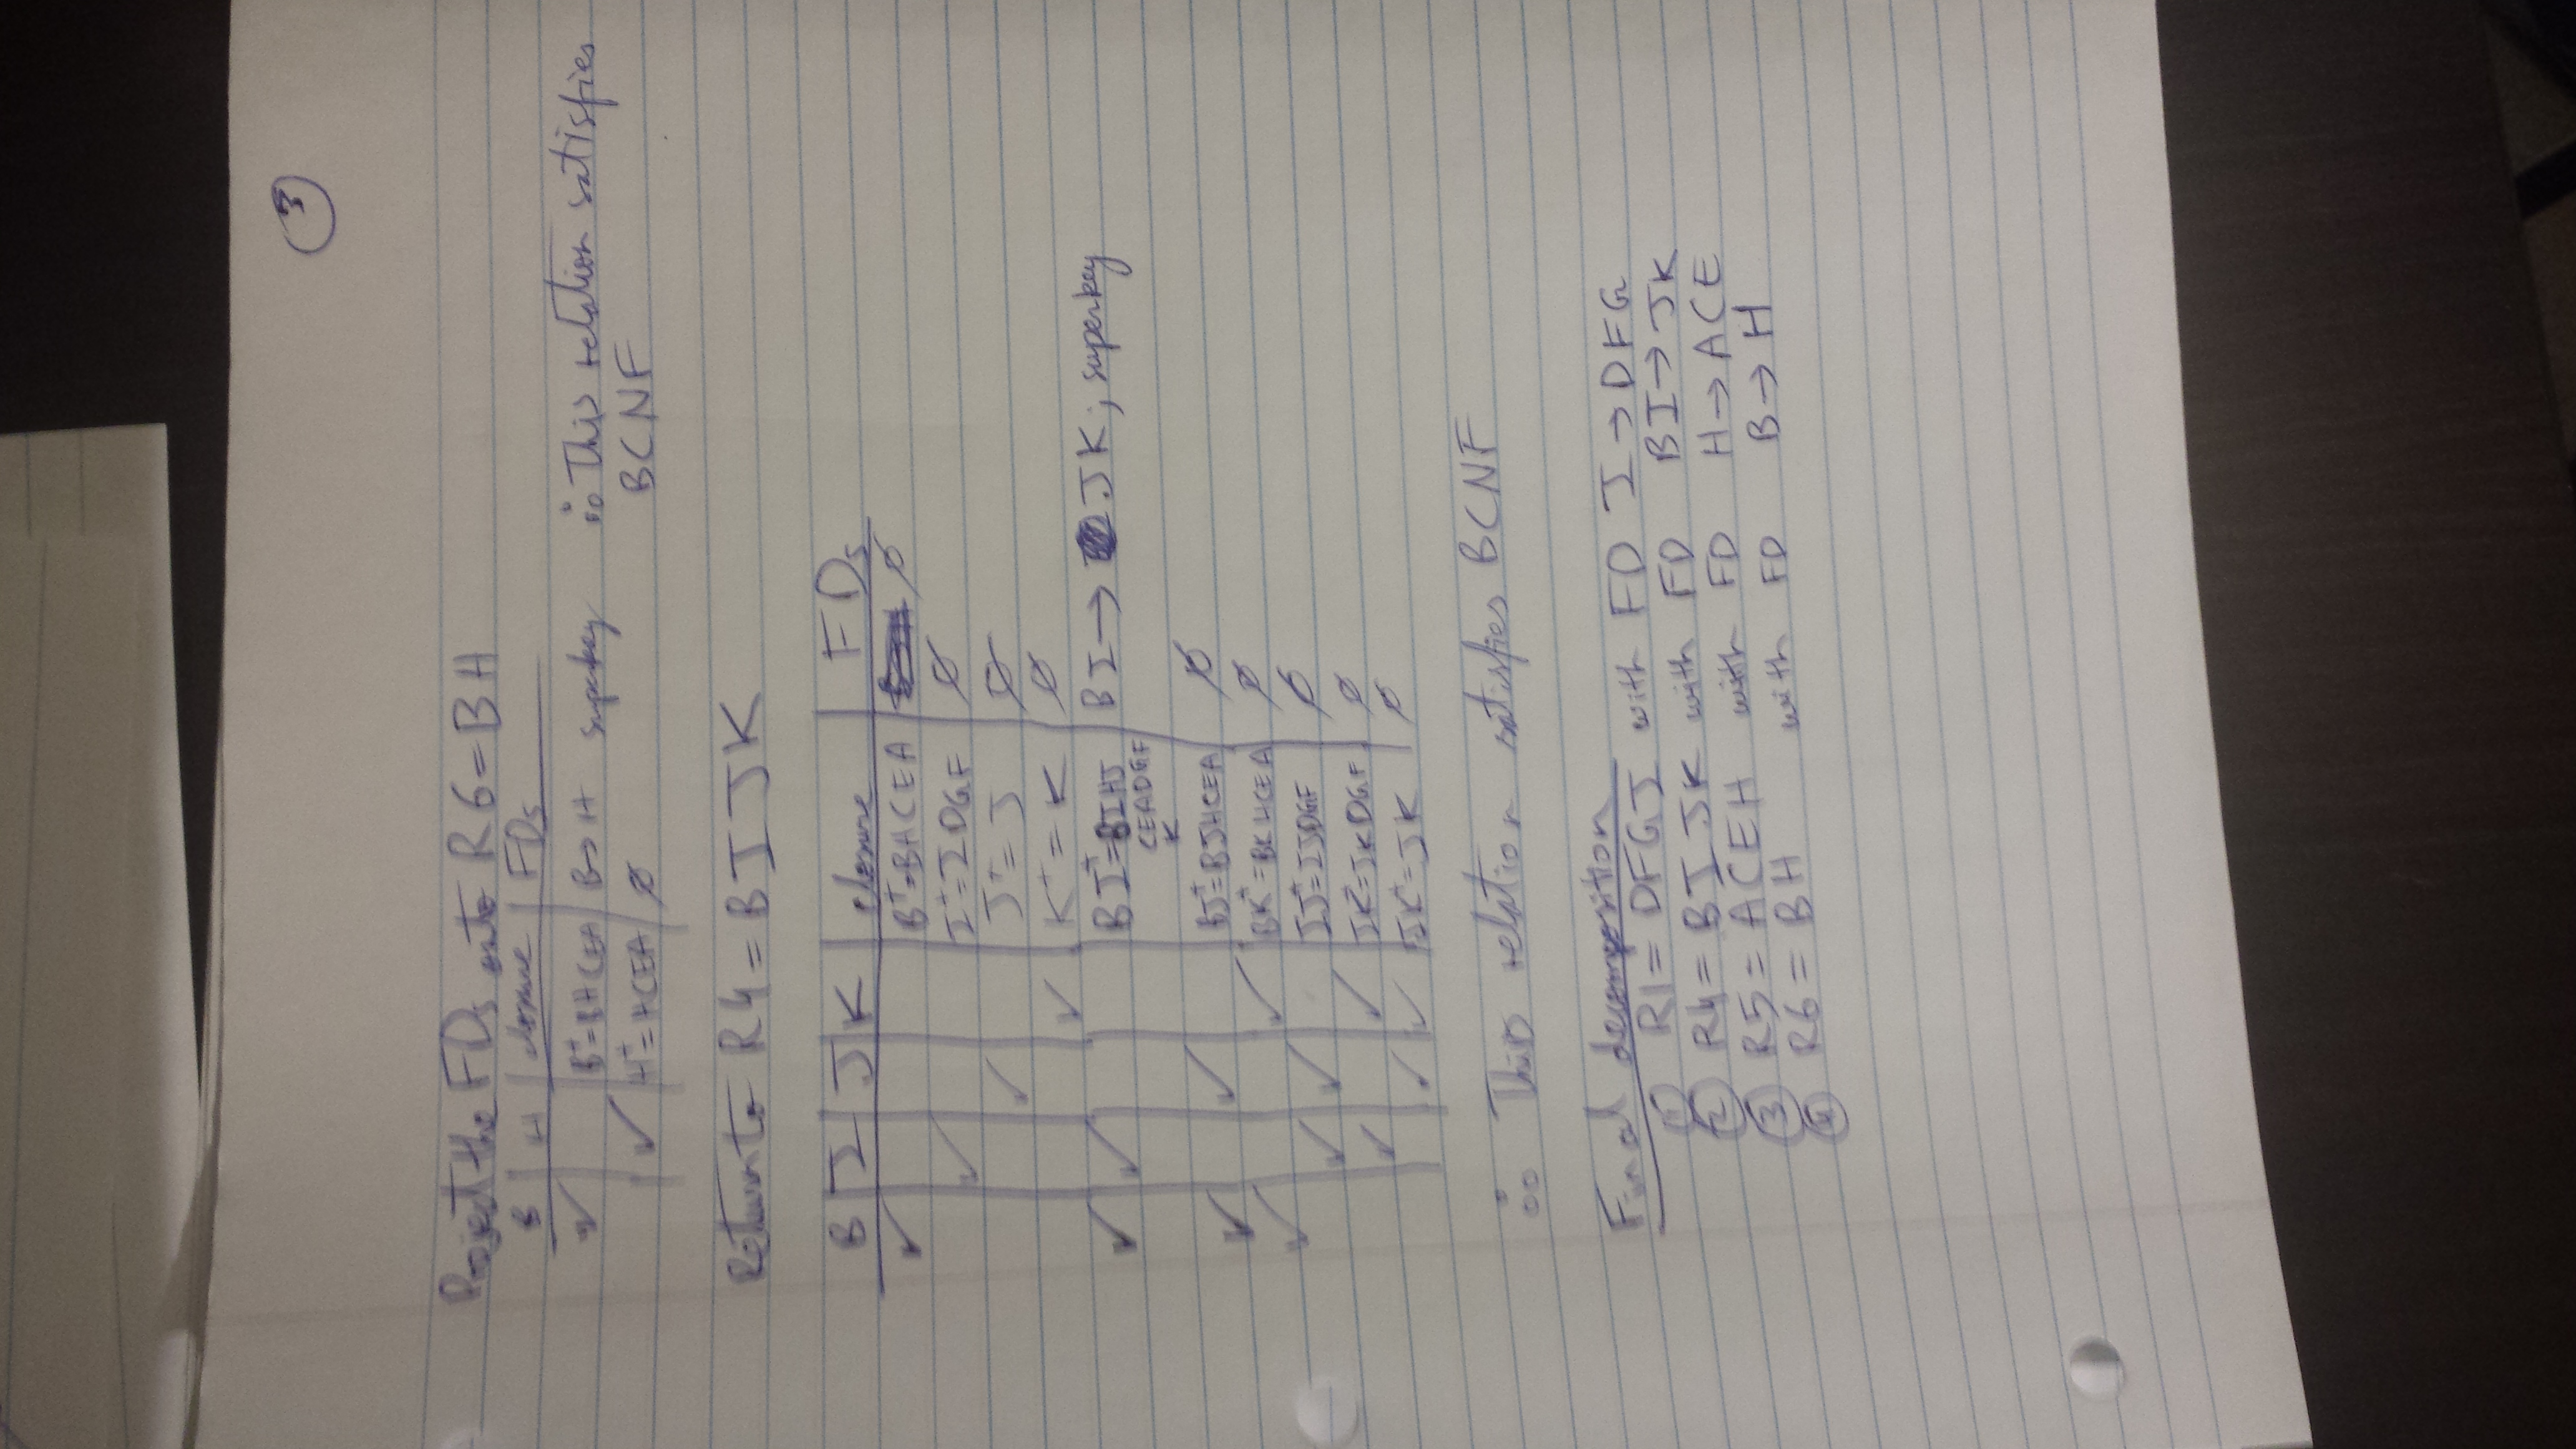 3
Project the FDs onto R6 = BH
B | H | closure | FDs
✓ | | B⁺=BHCEA | B→H superkey ∴ This relation satisfies
| ✓ | H⁺=HCEA | ∅ BCNF
Return to R4 = BIJK
B | I | J | K | closure | FDs
✓ | | | | B⁺=BHCEA | ∅
| ✓ | | | I⁺=IDGF | ∅
| | ✓ | | J⁺=J | ∅
| | | ✓ | K⁺=K | ∅
✓ | ✓ | | | BI⁺=BIHJ | BI→ JK, superkey
CEADGF
K
✓ | | ✓ | | BJ⁺=BJHCEA | ∅
✓ | | | ✓ | BK⁺=BKHCEA | ∅
| ✓ | ✓ | | IJ⁺=IJDGF | ∅
| ✓ | | ✓ | IK⁺=IKDGF | ∅
| | ✓ | ✓ | JK⁺=JK | ∅
∴ This relation satisfies BCNF
Final decomposition
① R1 = DFGI with FD I→DFG
② R4 = BIJK with FD BI→JK
③ R5 = ACEH with FD H→ACE
④ R6 = BH with FD B→H